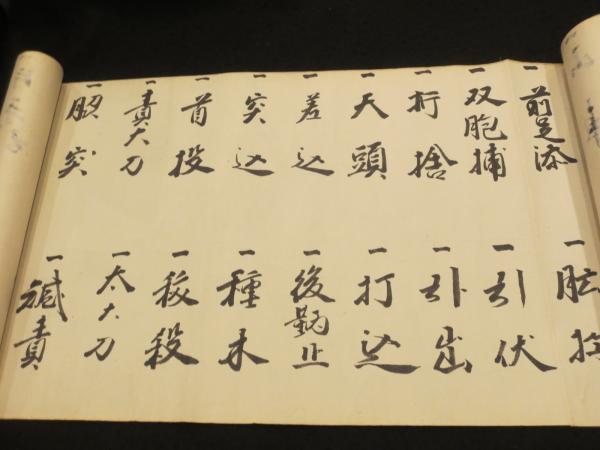 一 前足添
一 双胞捕
一 行捨
一 天頭
一 差込
一 突込
一 首投
一 責大刀
一 眼突
一 引伏
一 引出
一 打込
一 後鞆止
一 種木
一 殺
一 太大刀
一 責